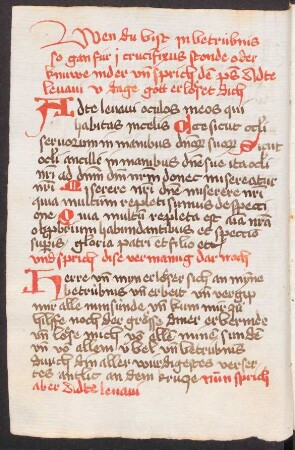 Wen du bist in betrubnis
so gan fur i crucifixus stonde oder
knuwe inder vn̄ sprich dē ps Adte
leuaui v dage gott erloset dich
Adte leuaui oculos meos qui
habitas in celis Ecce sicut ocli
seruorum in manibus dn̄oꝝ suoꝝ Sicut
ocli ancille in manibus dn̄e sue ita ocli
nr̄i ad dnm̄ dm̄ nr̄m donec misereatur
nr̄i Miserere nr̄i dn̄e miserere nr̄i
quia multum repleti sumus despecti
one Quia multū repleta est aīa nr̄a
obprobrium habundantibus et despectio
supbis gloria patri et filio et
vnd sprich dise vermanung dar noch
Herre vn̄ myn erloser sich an myne
betrubnis vn̄ erbeit vn̄ vergip
mir alle min sunde vn̄ kum mir zu
hilffe noch der grosse diner erbermde
vn̄ lose mich vō ellē minē sundē
vn̄ vō allem v̈bel vn̄ betrubnis
durch din aller wurdigestes verser
tes antlit an dem krutze nun sprich
aber Adte leuaui